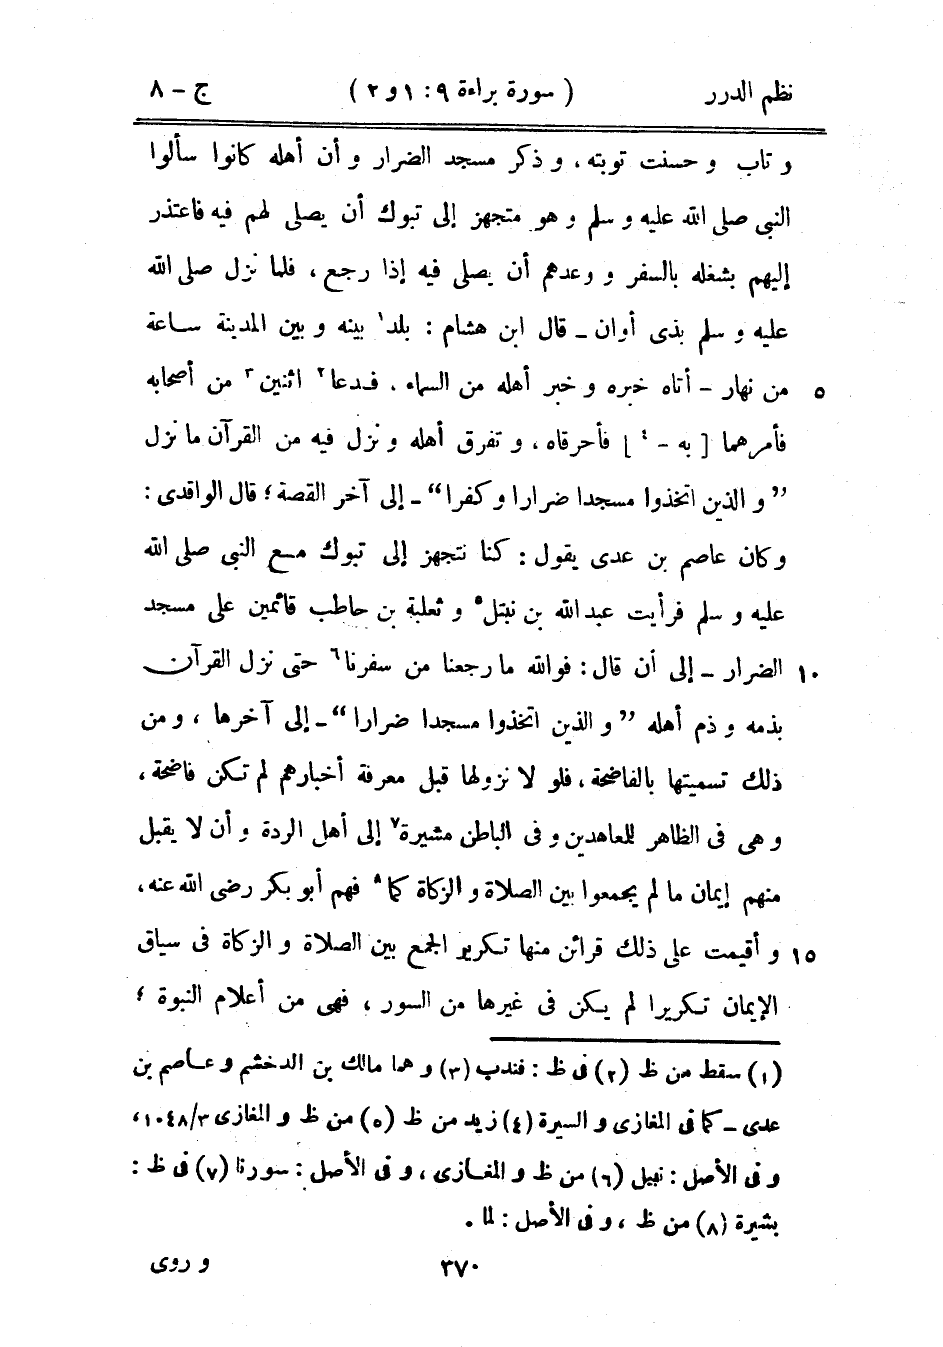 نظم الدرر ( سورة براءة ٩ : ١ و ٢ ) ج – ٨
و تاب و حسنت توبته ، و ذكر مسجد الضرار و أن أهله كانوا سألوا
النبى صلى الله عليه و سلم و هو متجهز إلى تبوك أن يصلى لهم فيه فاعتذر
إليهم بشغله بالسفر و وعدهم أن يصلى فيه إذا رجع ، فلما نزل صلى الله
عليه و سلم بذى أوان ــ قال ابن هشام : بلد١ بينه و بين المدينة ساعة
٥ من نهار – أتاه خبره و خبر أهله من السماء ، فدعا٢ اثنين٣ من أصحابه
فأمرهما [ به – ٤ ] فأحرقاه ، و تفرق أهله و نزل فيه من القرآن ما نزل
” و الذين اتخذوا مسجدا ضرارا و كفرا “ ــ إلى آخر القصة ؛ قال الواقدى :
وكان عاصم بن عدى يقول : كنا نتجهز إلى تبوك مع النبى صلى الله
عليه و سلم فرأيت عبد الله بن نبتل٥ و ثعلبة بن حاطب قائمين على مسجد
١٠ الضرار ــ إلى أن قال : فوالله ما رجعنا من سفرنا٦ حتى نزل القرآن
بذمه و ذم أهله ” و الذين اتخذوا مسجدا ضرارا “ ــ إلى آخرها ، و من
ذلك تسميتها بالفاضحة ، فلو لا نزولها قبل معرفة أخبارهم لم تكن فاضحة ،
و هى فى الظاهر للعاهدين و فى الباطن مشيرة٧ إلى أهل الردة و أن لا يقبل
منهم إيمان ما لم يجمعوا بين الصلاة و الزكاة كما٨ فهم أبو بكر رضى الله عنه ،
١٥ و أقيمت على ذلك قرائن منها تكرير الجمع بين الصلاة و الزكاة فى سياق
الإيمان تكريرا لم يكن فى غيرها من السور ، فهى من أعلام النبوة ؛
(١) سقط من ظ (٢) فى ظ : فندب (٣) و هما مالك بن الدخشم و عاصم بن
عدى ــ كما فى المغازى و السيرة (٤) زيد من ظ (٥) من ظ و المغازى ١٠٤٨/٣ ،
و فى الأصل : نفيل (٦) من ظ و المغازى ، و فى الأصل : سورنا (٧) فى ظ :
بشيرة (٨) من ظ ، و فى الأصل : لما .
٣٧٠ و روى